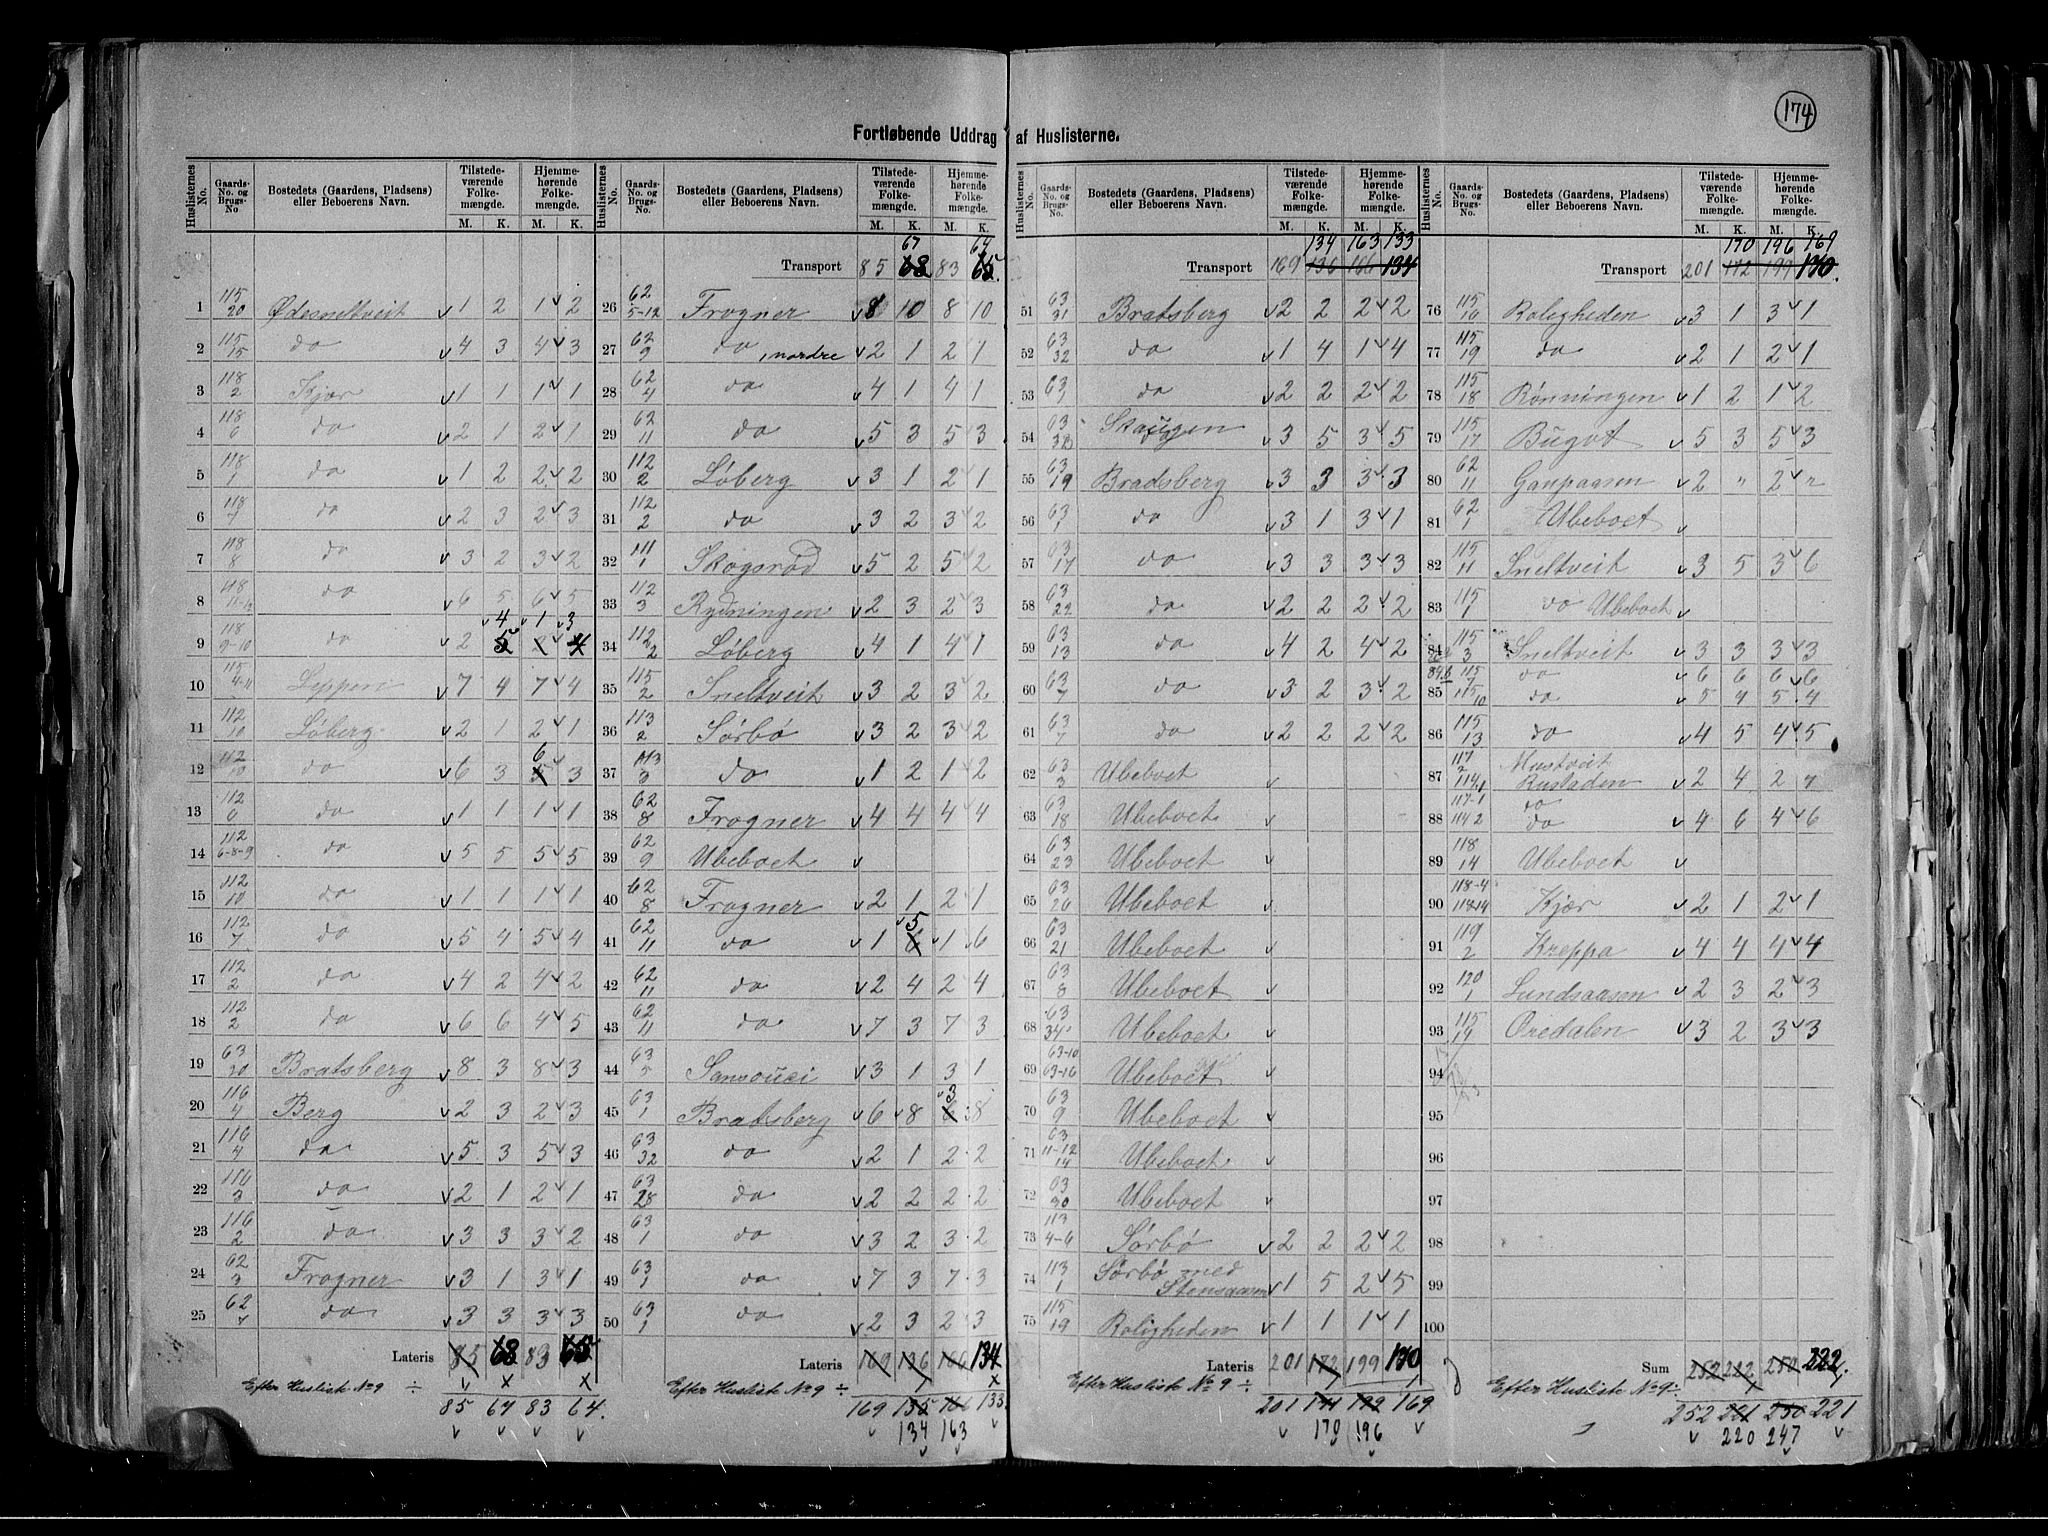 174
Fortløbende Uddrag af Huslisterne.
Huslisternes No. Gaards-No. og Brugs-No. Bostedets (Gaardens, Pladsens) eller Beboerens Navn. Tilstedeværende Folkemængde. M. K. Hjemmehørende Folkemængde. M. K.
1 115/20 Ødesneltveit 1 2 1 2
2 115/15 do 4 3 4 3
3 118/2 Kjær 1 1 1 1
4 118/6 do 2 1 2 1
5 118/1 do 1 2 2 2
6 118/7 do 2 3 2 3
7 118/8 do 3 2 3 2
8 118 do 6 5 6 5
4 1 3
9 118/9-10 do 2 5 2 4
10 115/4-11 7 4 7 4
11 112/10 Løberg 2 1 2 1
6
12 112/10 do 6 3 5 3
13 112/6 do 1 1 1 1
14 112/6-8-9 do 5 5 5 5
15 112/10 do 1 1 1 1
16 112/7 do 5 4 5 4
17 112/2 do 4 2 4 2
18 112/2 do 6 6 4 5
19 63/20 Bratsberg 8 3 8 3
20 116/4 Berg 2 3 2 3
21 116/4 do 5 3 5 3
22 116/3 do 2 1 2 1
23 116/2 do 3 3 3 2
24 62/3 Frogner 3 1 3 1
25 62/7 do 3 3 3 3
Lateris 85 68 83 65
Efter Husliste No 9 ÷
85 67 83 64.
67 64
Transport 85 68 83 65
26 62/5-12 Frogner 8 10 8 10
27 62/9 do, nordre 2 1 2 1
28 62/4 do 4 1 4 1
29 62/11 do 5 3 5 3
30 112/2 Løberg 3 1 2 1
31 112/2 do 3 2 3 2
32 111/1 Skogsrød 5 2 5 2
33 112/3 Rydningen 2 3 2 3
34 112/2 Løberg 4 1 4 1
35 115/2 Sneltveit 3 2 3 2
36 113/2 Sørbø 3 2 3 2
37 113/3 do 1 2 1 2
38 62/8 Frogner 4 4 4 4
39 62/9 Ubeboet
40 62/8 Frogner 2 1 2 1
5
41 62/11 do 1 6 1 6
42 62/11 do 2 4 2 4
43 62/11 do 7 3 7 3
44 63/5 Sansouci 3 1 3 1
3
45 63/1 Bratsberg 6 8 6 8
46 63/32 do 2 1 2 2
47 63/28 do 2 2 2 2
48 63/1 do 3 2 3 2
49 63/1 do 7 3 7 3
50 63/1 do 2 3 2 3
Lateris 169 136 166 134
Efter Husliste No 9 ÷
169 135 166 133
134 163
134 163 133
Transport 169 136 166 134
51 63/31 Bratsberg 2 2 2 2
52 63/32 do 1 4 1 4
53 63/1 do 2 2 2 2
54 63 Skaugen 3 5 3 5
55 63/19 Bradsberg 3 3 3 3
56 63/1 do 3 1 3 1
57 63/17 do 3 3 3 3
58 63/22 do 2 2 2 2
59 63/13 do 4 2 4 2
60 63/7 do 3 2 3 2
61 63/7 do 2 2 2 2
62 63/3 Ubeboet
63 63/18 Ubeboet
64 63/23 Ubeboet
65 63/26 Ubeboet
66 63/21 Ubeboet
67 63/8 Ubeboet
68 63/34 Ubeboet
69 63-10 63-16 Ubeboet
70 63/9 Ubeboet
71 63/11-12 14 Ubeboet
72 63/30 Ubeboet
73 113/4-6 Sørbø 2 2 2 2
74 113/1 Sørbø med Stensaasen 1 5 2 5
75 115/19 Roligheden 1 1 1 1
Lateris 201 172 199 170
Efter Husliste No 9 ÷
201 171 199 169
170 196
170 196 169
Transport 201 172 199 170
76 115/16 Roligheden 3 1 3 1
77 115/19 do 2 1 2 1
78 115/18 Rønningen 1 2 1 2
79 115/17 Bugot 5 3 5 3
80 62/11 Gaupaasen 2 " 2 "
81 62/1 Ubeboet
82 115/11 Sneltveit 3 5 3 6
83 115/1 do Ubeboet
84 115/3 Sneltveit 3 3 3 3
84b 115 do 6 6 6 6
85 115/10 do 5 4 5 4
86 115/13 do 4 5 4 5
87 117/2 114,1 Mustveit Rustaden 2 4 2 4
88 117-1 114 2 do do 4 6 4 6
89 118/14 Ubeboet
90 118-4 118-14 Kjær 2 1 2 1
91 119/2 Kreppa 4 4 4 4
92 120/1 Lundsaasen 2 3 2 3
93 115/14 Øredalen 3 2 3 3
94
95
96
97
98
99
100
Sum 252 222 250 222
Efter Husliste No 9 ÷
252 221 250 221
220 247